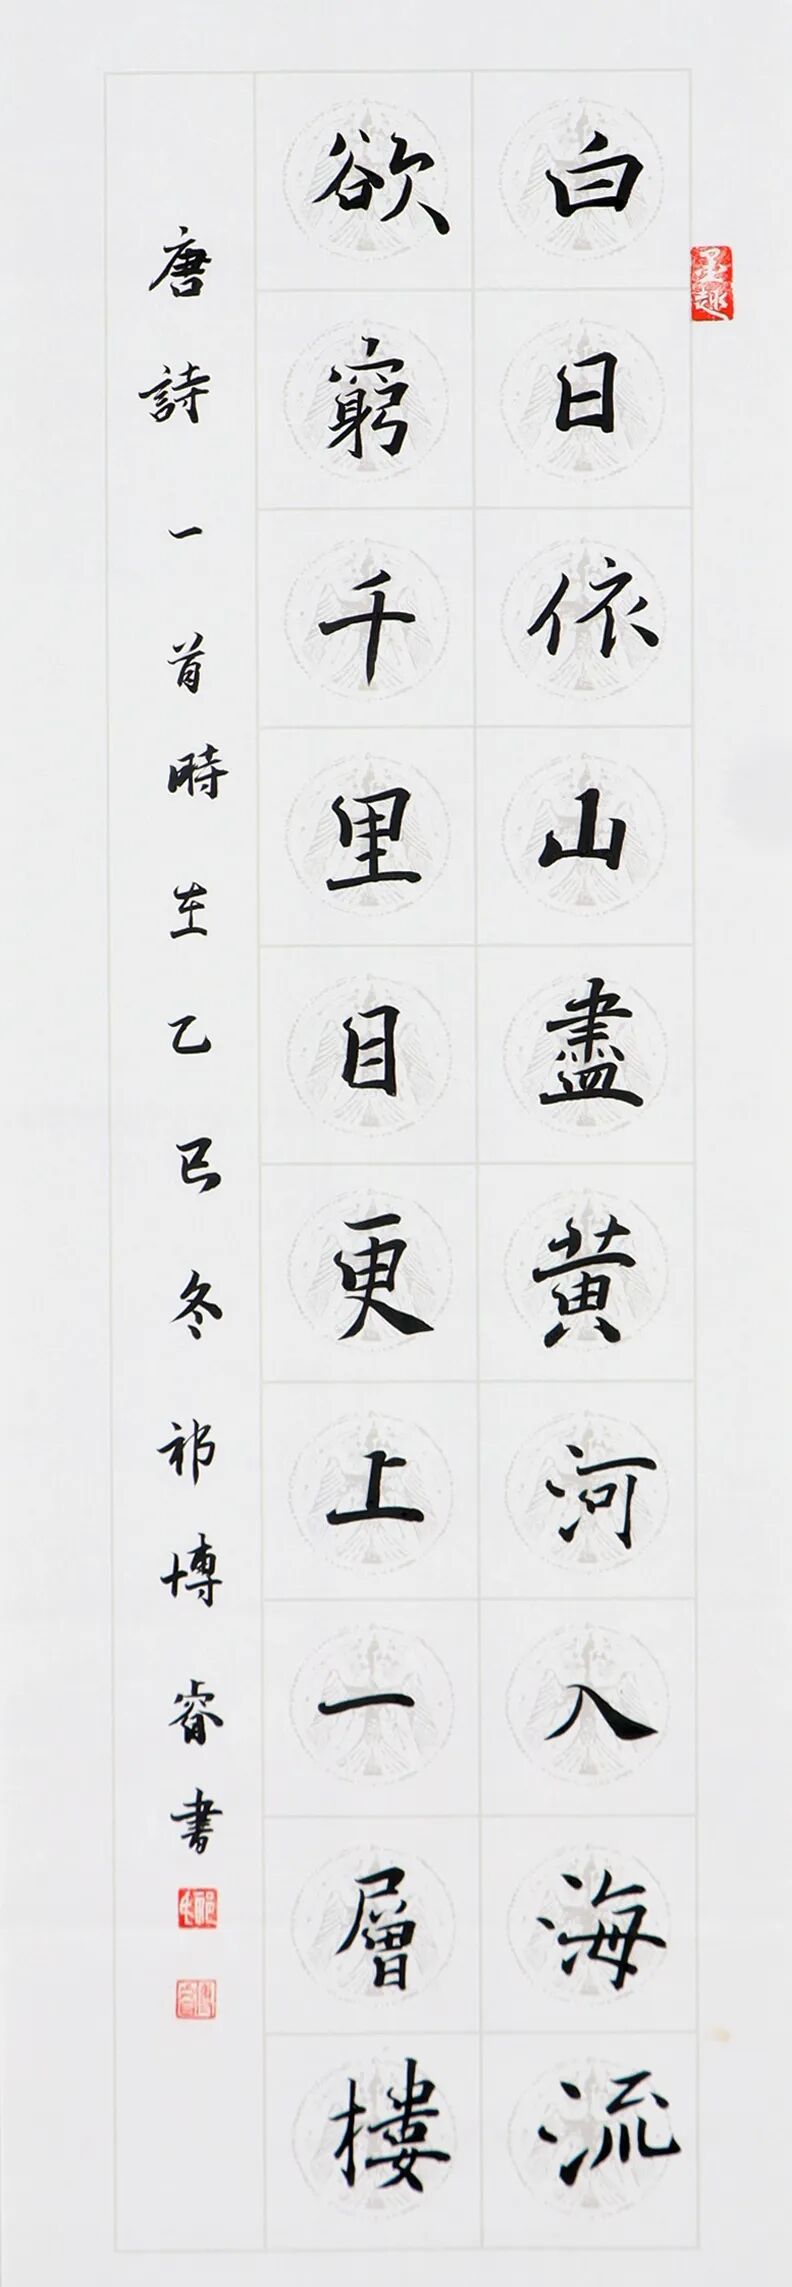 白日依山盡黄河入海流
欲窮千里目更上一層樓
唐詩一首時在乙巳冬祁博睿書
墨趣